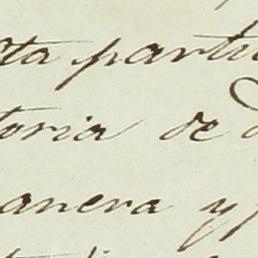 sta partic
toria de
anera y f